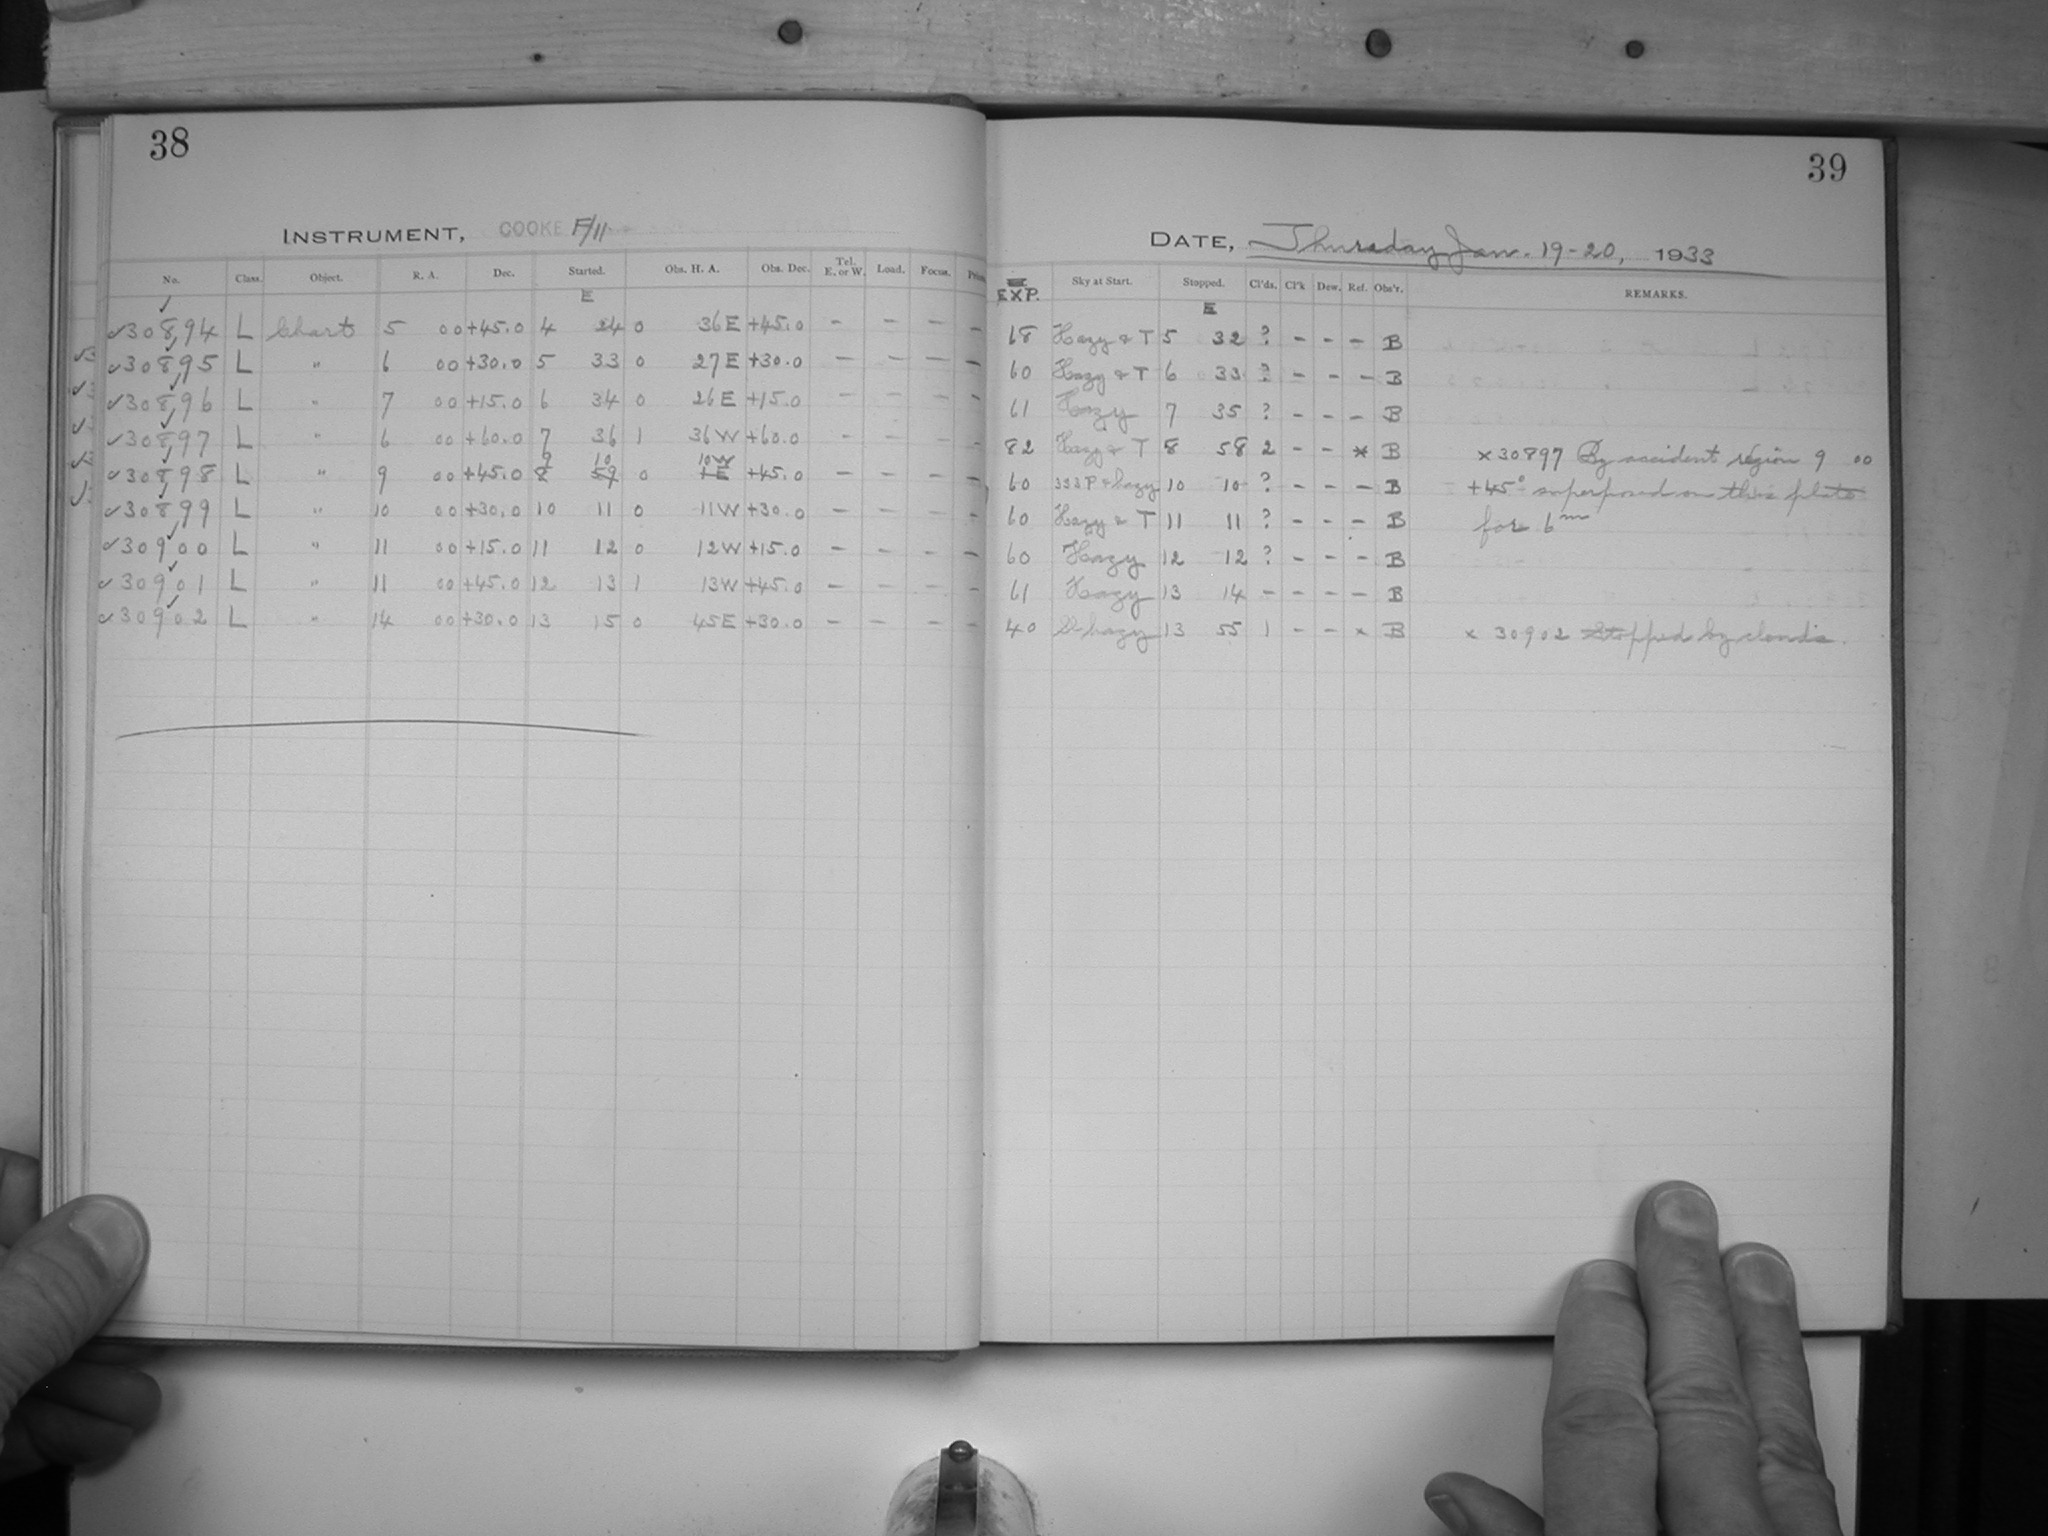 38
INSTRUMENT, COOKE F/11
No. Class. Object. R. A. Dec. Started. Obs. H. A. Obs. Dec. Tel. E. or W. Load. Focus.
E
✓30894 L Charts 5 00 +45.0 4 24 0 36E +45.0 - - - -
✓30895 L " 6 00 +30.0 5 33 0 27E +30.0 - - - -
✓30896 L " 7 00 +15.0 6 34 0 26E +15.0 - - - -
✓30897 L " 6 00 +60.0 7 36 1 36W +60.0 - - - -
9 10 10W
✓30898 L " 9 00 +45.0 8 59 0 1E +45.0 - - - -
✓30899 L " 10 00 +30.0 10 11 0 11W +30.0 - - - -
✓30900 L " 11 00 +15.0 11 12 0 12W +15.0 - - - -
✓30901 L " 11 00 +45.0 12 13 1 13W +45.0 - - - -
✓30902 L " 14 00 +30.0 13 15 0 45E +30.0 - - - -
39
DATE, Thursday Jan. 19-20, 1933
EXP. Sky at Start. Stopped. Cl'ds. Cl'k Dew. Ref. Obs'r. REMARKS.
E
68 Hazy & T 5 32 ? - - - B
60 Hazy & T 6 33 ? - - - B
61 Hazy 7 35 ? - - - B
82 Hazy & T 8 58 2 - - x B x 30897 By accident region 9 00
60 333P & hazy 10 10 ? - - - B +45° superposed on this plate
60 Hazy & T 11 11 ? - - - B for 6m
60 Hazy 12 12 ? - - - B
61 Hazy 13 14 - - - - B
40 Sl hazy 13 55 1 - - x B x 30902 Stopped by clouds.